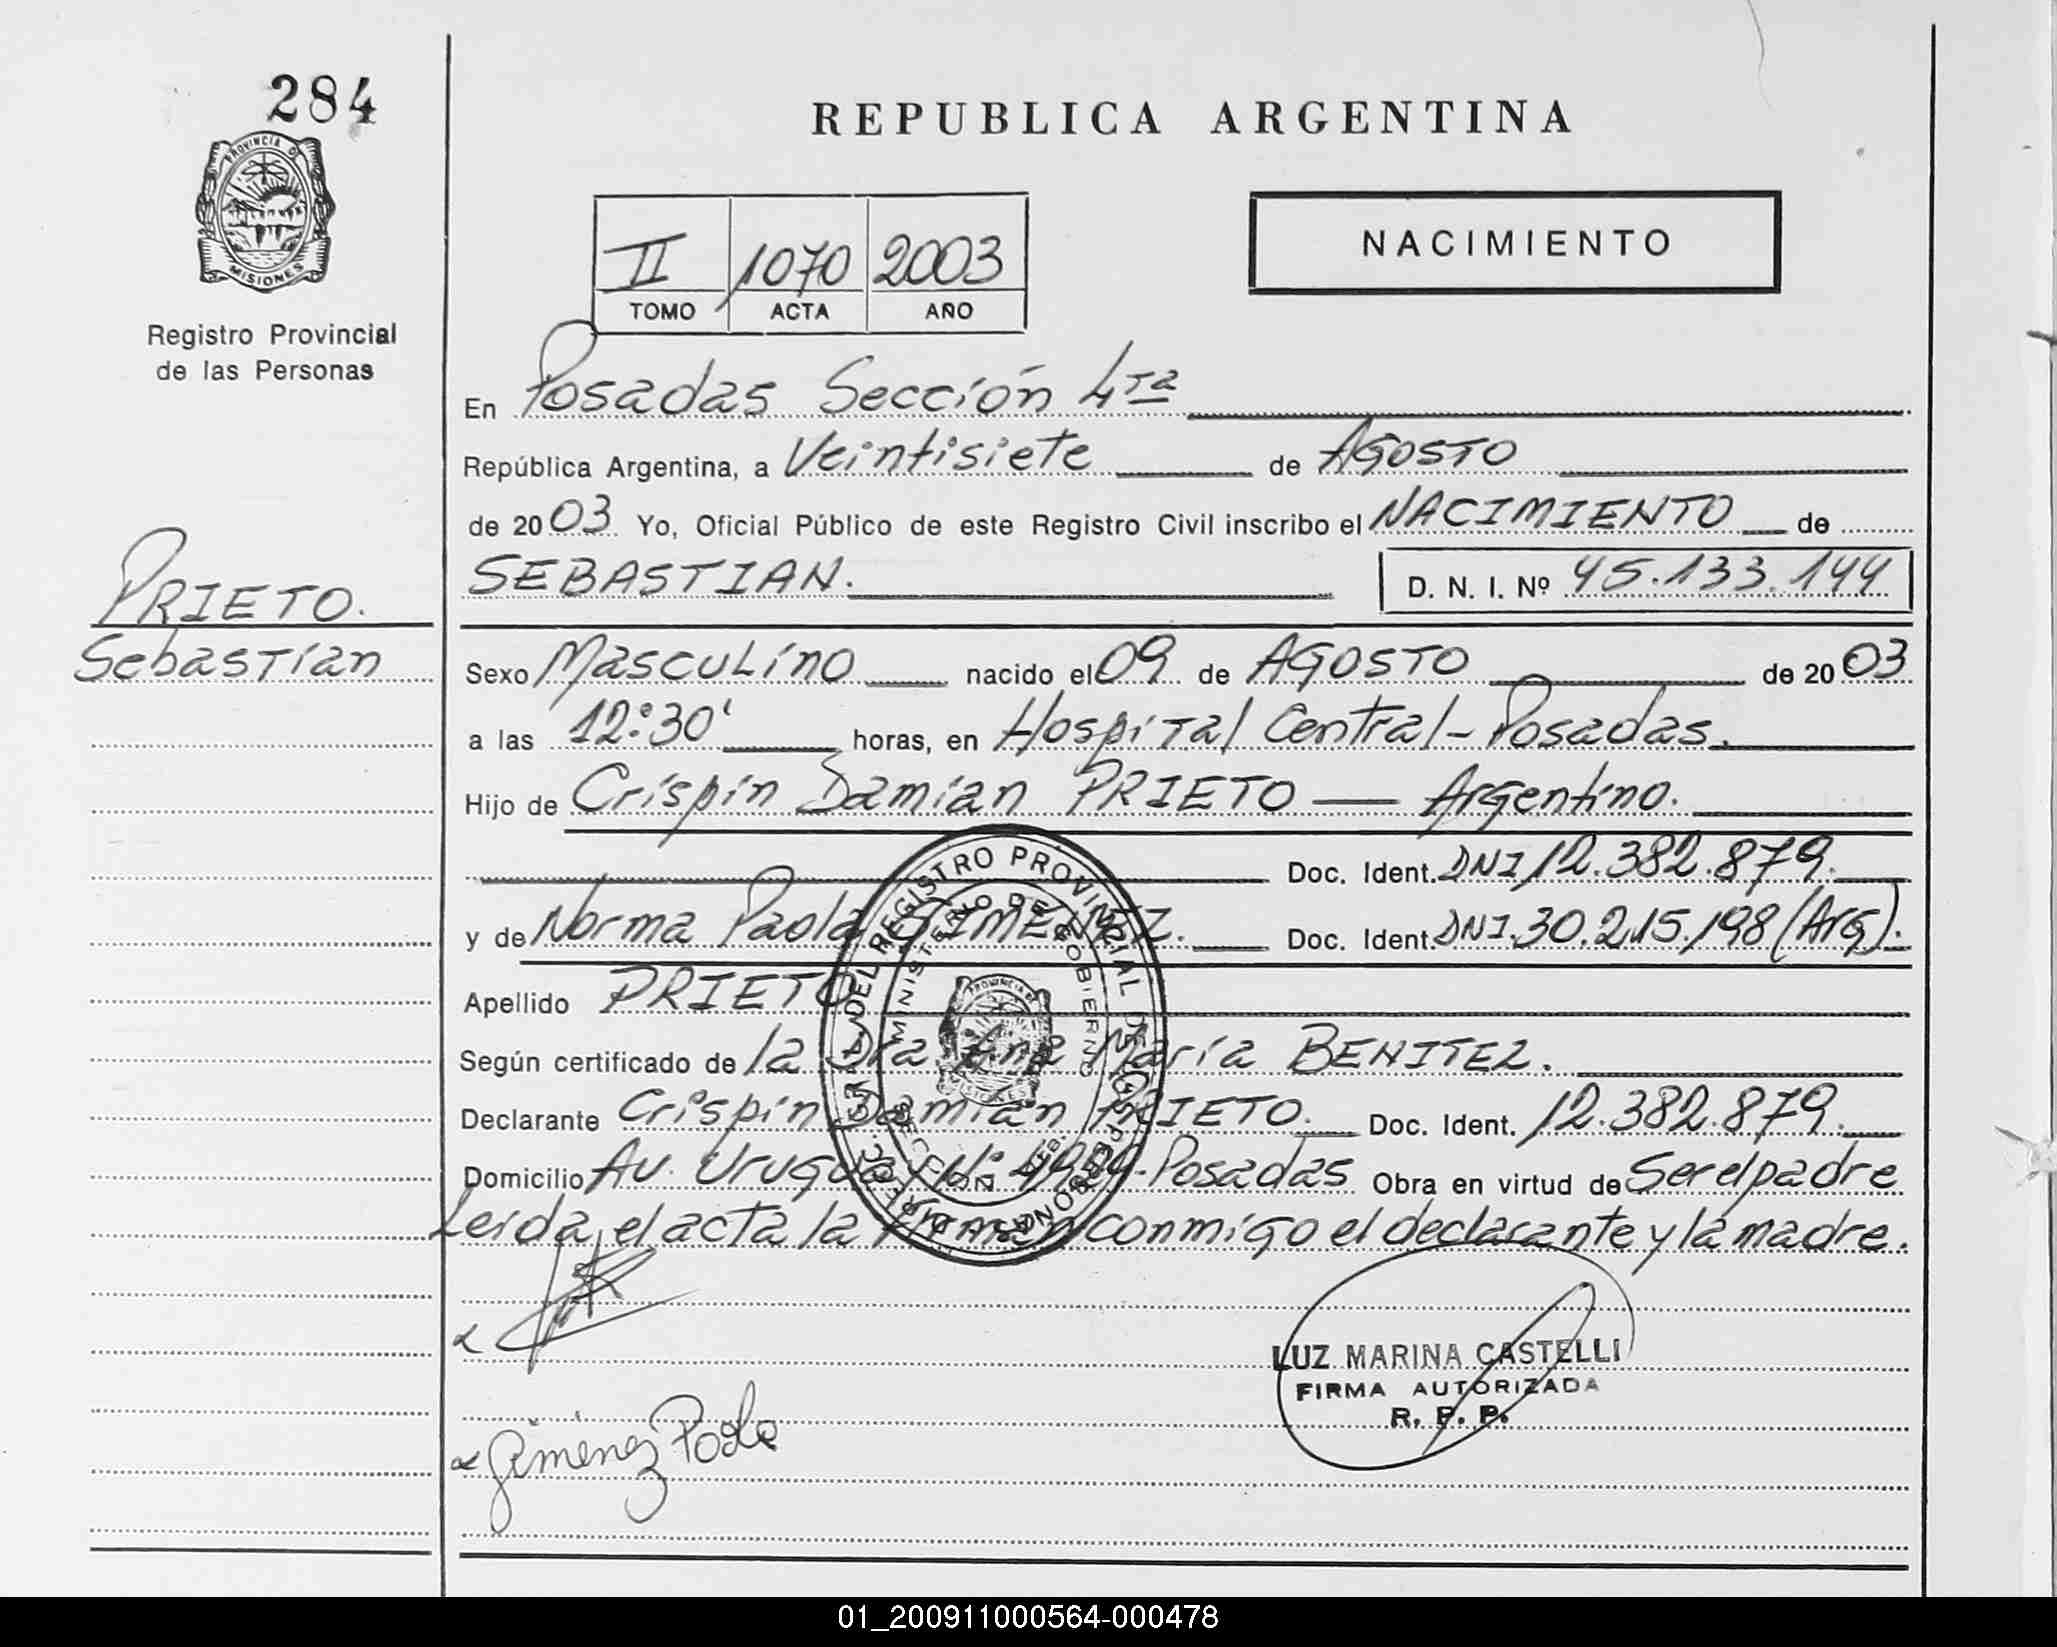 284
REPUBLICA ARGENTINA
PROVINCIA DE
MISIONES
Registro Provincial
de las Personas
II 1070 2003
TOMO ACTA AÑO
NACIMIENTO
En Posadas Sección 4ta
República Argentina, a Veintisiete de AGOSTO
de 2003 Yo, Oficial Público de este Registro Civil inscribo el NACIMIENTO de
SEBASTIAN. D. N. I. Nº 45.133.144
PRIETO.
Sebastián
Sexo Masculino nacido el 09 de AGOSTO de 2003
a las 12:30' horas, en Hospital Central - Posadas.
Hijo de Crispín Damián PRIETO — Argentino.
Doc. Ident. DNI 12.382.879.
y de Norma Paola GIMENEZ. Doc. Ident. DNI.30.215.198 (Arg).
Apellido PRIETO
Según certificado de la Dra Ana María BENITEZ.
Declarante Crispín Damián PRIETO. Doc. Ident. 12.382.879.
Domicilio Av. Uruguay Nº Posadas Obra en virtud de Ser el padre
Leída el acta la firman conmigo el declarante y la madre.
DEL REGISTRO PROVINCIAL DE LAS PERSONAS
MINISTERIO DE GOBIERNO
PROVINCIA DE
MISIONES
SECCION
LUZ MARINA CASTELLI
FIRMA AUTORIZADA
R. P. P.
Gimenez Paola
01_200911000564-000478